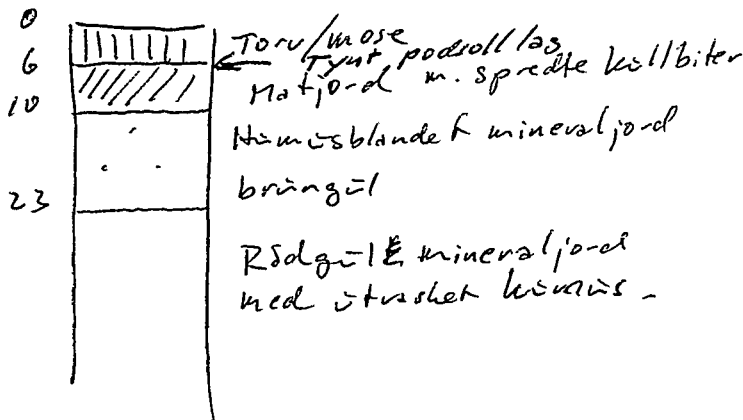 0
Torv/mose
Tynt podsoll lag
6
Matjord m. spredte kullbiter
10
Humusblandet mineraljord
brungul
23
Rødgul mineraljord
med utvasket humus